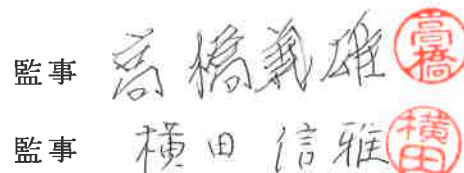 監事 高橋義雄 髙橋
監事 横田信雅 横田